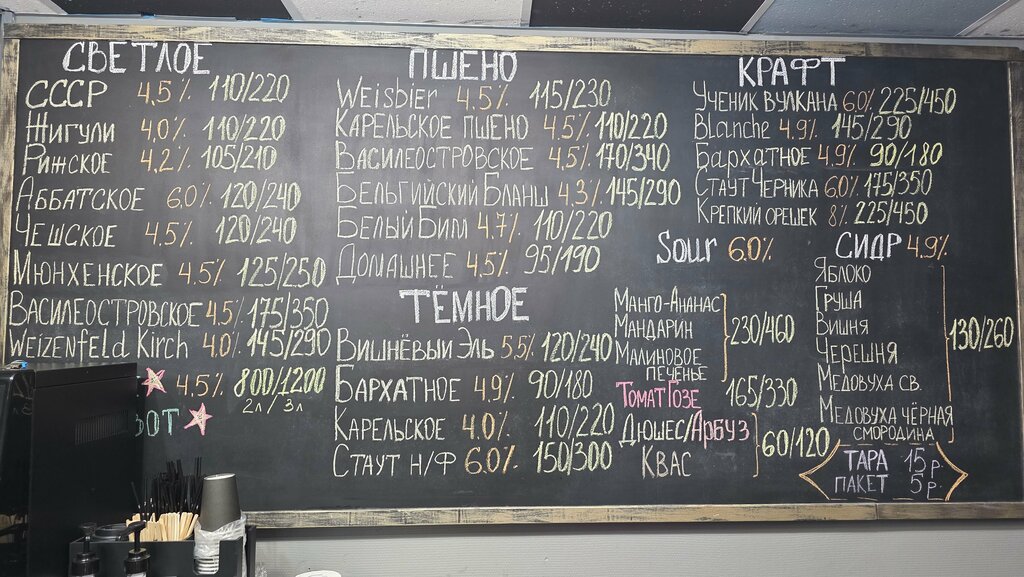 СВЕТЛОЕ
СССР 4,5% 110/220
ЖИГУЛИ 4,0% 110/220
РИЖСКОЕ 4,2% 105/210
АББАТСКОЕ 6.0% 120/240
ЧЕШСКОЕ 4,5% 120/240
МЮНХЕНСКОЕ 4.5% 125/250
ВАСИЛЕОСТРОВСКОЕ 4,5% 175/350
Weizenfeld Kirch 4,0% 145/290
4.5% 800/1200
2л / 3л
ПШЕНО
Weisbier 4.5% 115/230
КАРЕЛЬСКОЕ ПШЕНО 4,5% 110/220
ВАСИЛЕОСТРОВСКОЕ 4,5% 170/340
БЕЛЬГИЙСКИЙ БЛАНШ 4,3% 145/290
БЕЛЫЙ БИМ 4,7% 110/220
ДОМАШНЕЕ 4,5% 95/190
ТЁМНОЕ
ВИШНЁВЫЙ ЭЛЬ 5,5% 120/240
БАРХАТНОЕ 4,9% 90/180
КАРЕЛЬСКОЕ 4.0% 110/220
СТАУТ Н/Ф 6.0% 150/300
КРАФТ
УЧЕНИК ВУЛКАНА 6.0% 225/450
Blanche 4.9% 145/290
БАРХАТНОЕ 4,9% 90/180
СТАУТ ЧЕРНИКА 6,0% 175/350
КРЕПКИЙ ОРЕШЕК 8% 225/450
Sour 6.0%
МАНГО-АНАНАС
МАНДАРИН 230/460
МАЛИНОВОЕ
ПЕЧЕНЬЕ
ТОМАТ ГОЗЕ 165/330
ДЮШЕС/АРБУЗ 60/120
КВАС
СИДР 4.9%
ЯБЛОКО
ГРУША
ВИШНЯ 130/260
ЧЕРЕШНЯ
МЕДОВУХА СВ.
МЕДОВУХА ЧЁРНАЯ
СМОРОДИНА
ТАРА 15 р.
ПАКЕТ 5 р.